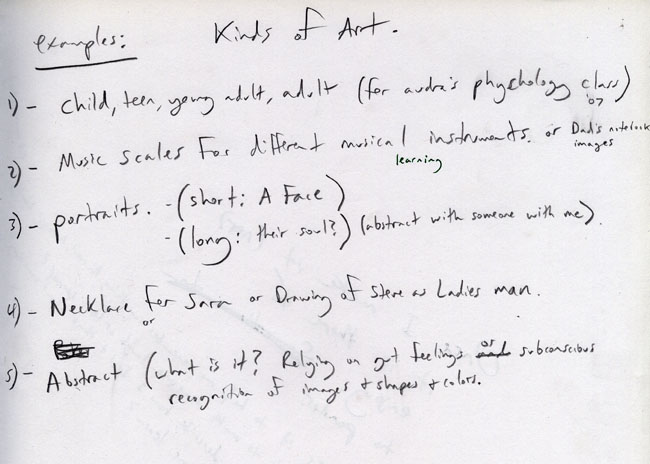 Kinds of Art.
examples:
1) - child, teen, young adult, adult (for audra's phychology class)
'07
2) - Music scales For different musical instruments. or Dad's notebook
learning images
3) - portraits. - (short: A Face)
- (long: their soul?) (abstract with someone with me)
4) - Necklace for Sara or Drawing of Steve as Ladies man.
or
5) - Abstract (what is it? Relying on gut feelings or subconscious
recognition of images + shapes + colors.